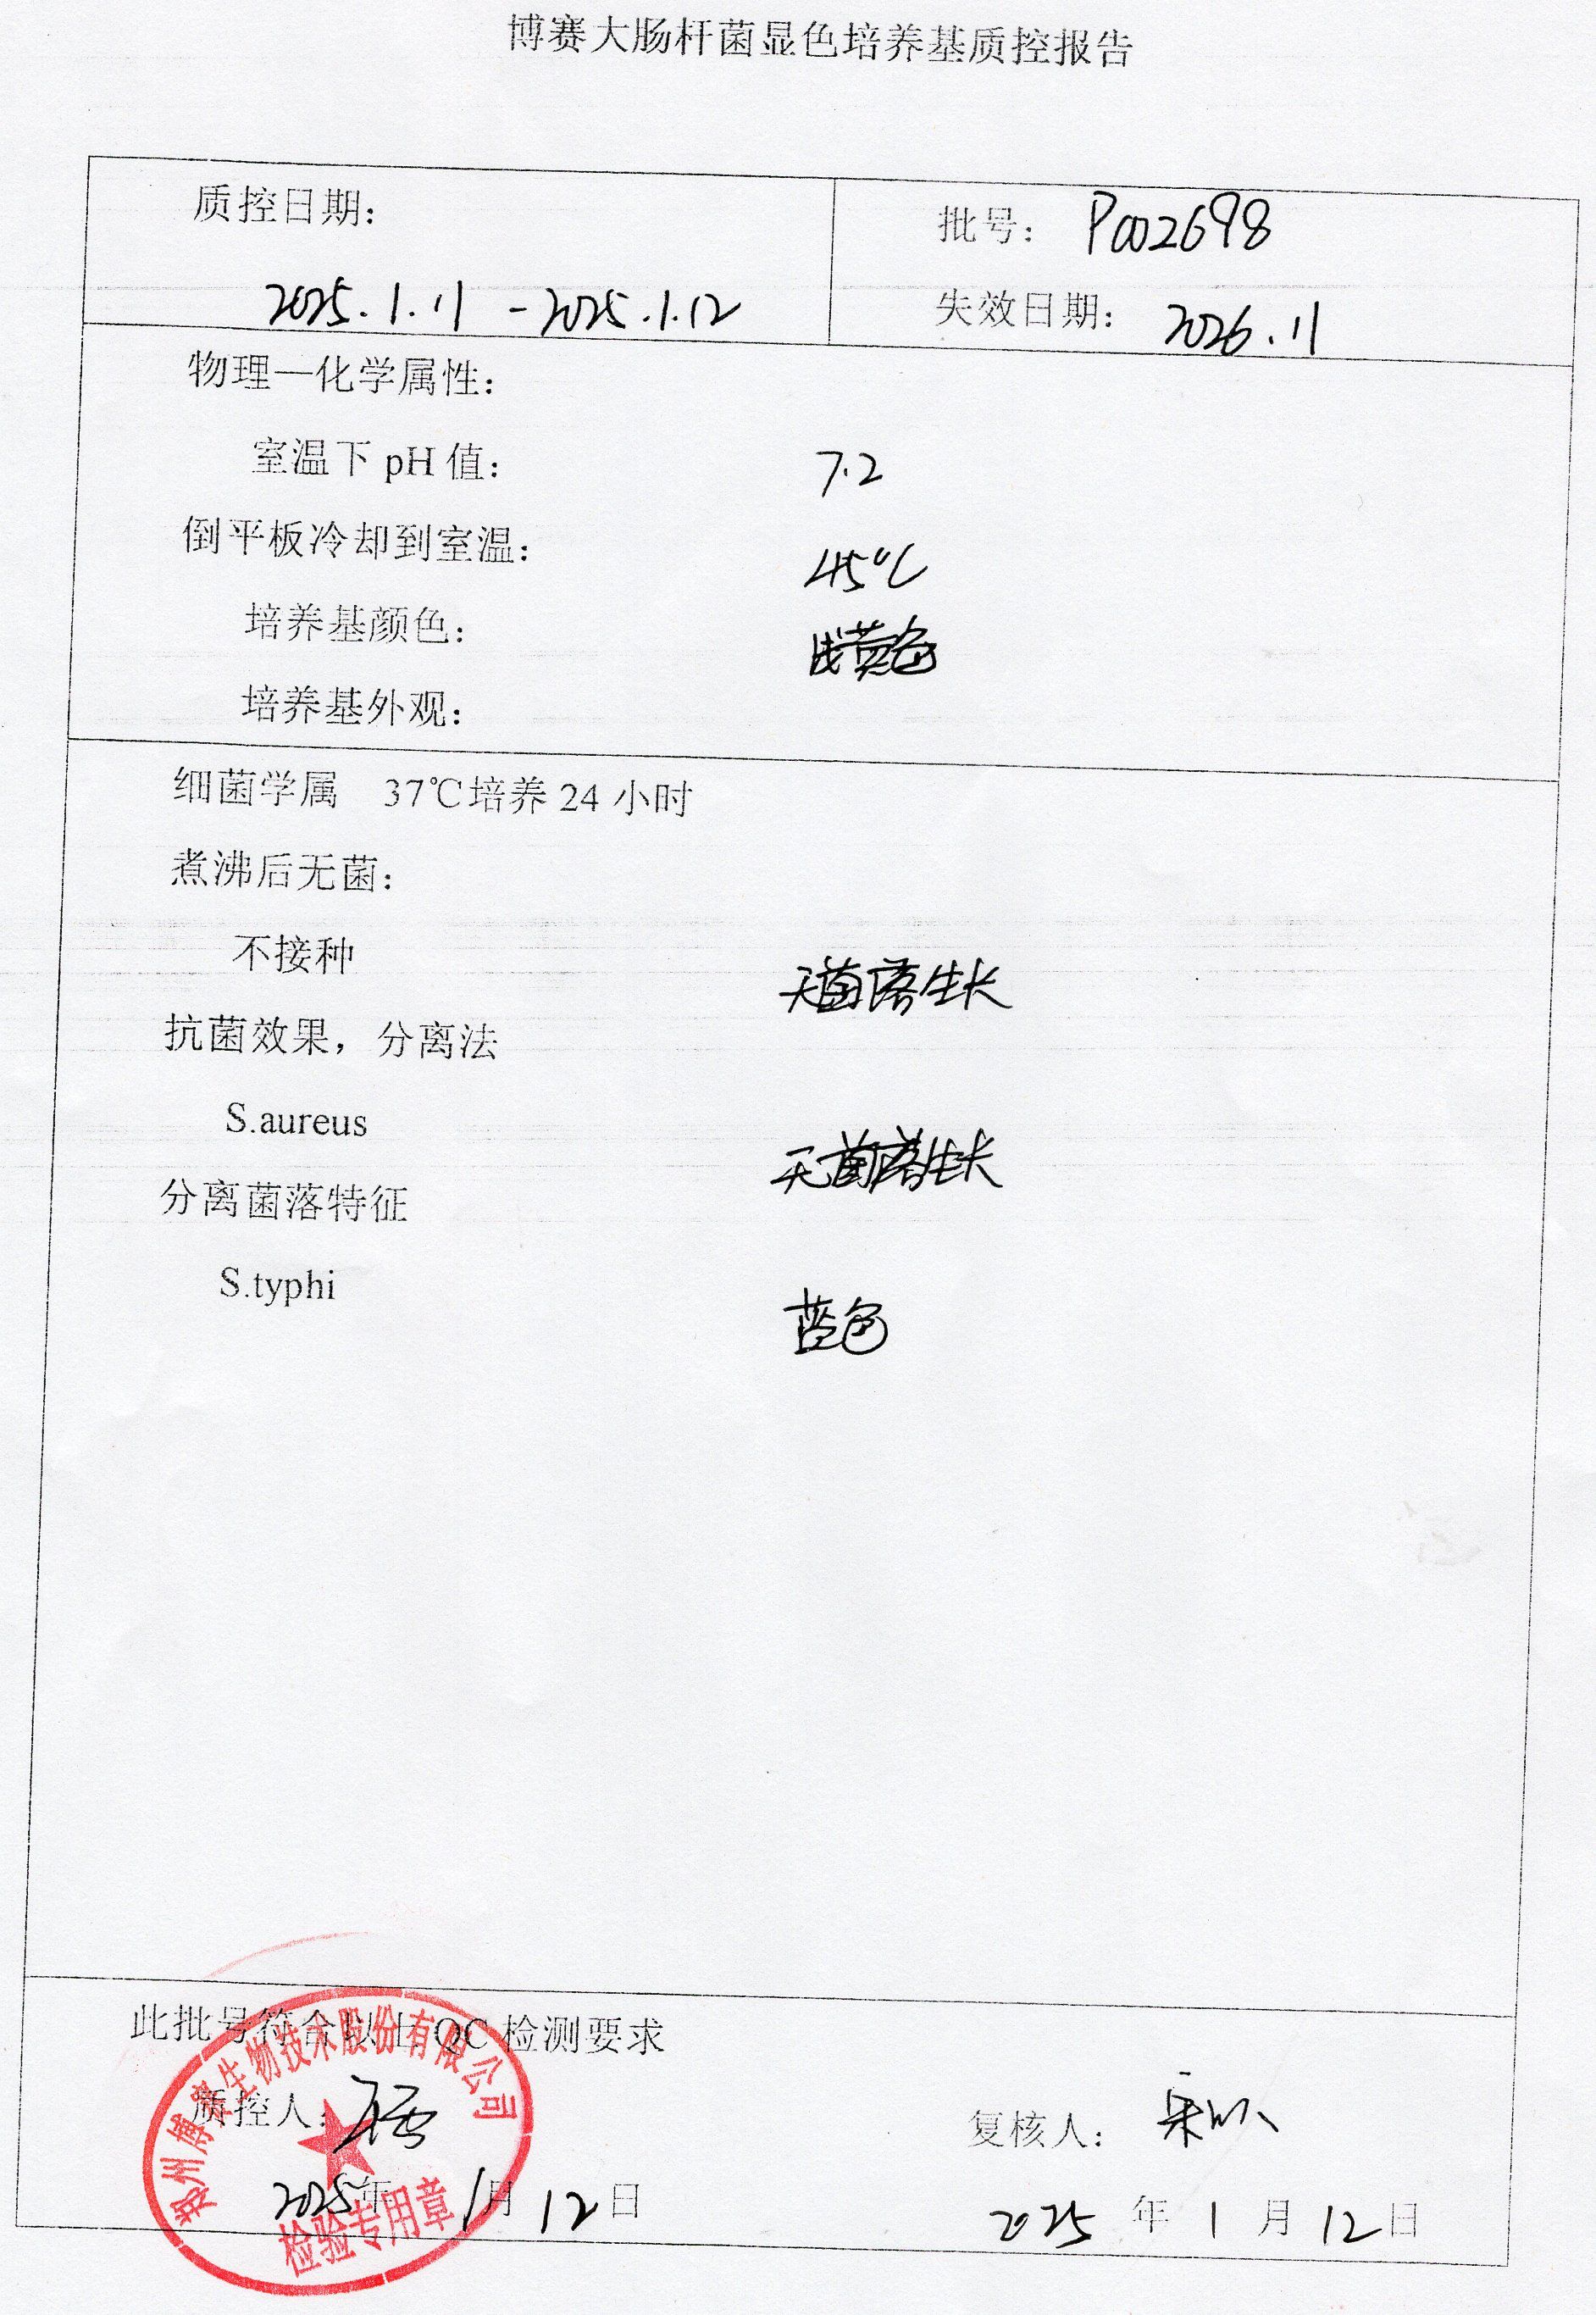 博赛大肠杆菌显色培养基质控报告
质控日期：
2025.1.11-2025.1.12
批号： P002698
失效日期： 2026.11
物理—化学属性：
室温下 pH 值： 7.2
倒平板冷却到室温： 45℃
培养基颜色： 浅黄色
培养基外观：
细菌学属 37℃培养 24 小时
煮沸后无菌：
不接种 无菌落生长
抗菌效果，分离法
S.aureus 无菌落生长
分离菌落特征
S.typhi 蓝色
此批号符合以上 QC 检测要求
质控人：
复核人：
2025年 1月 12日
2025 年 1 月 12日
郑州博赛生物技术股份有限公司
检验专用章